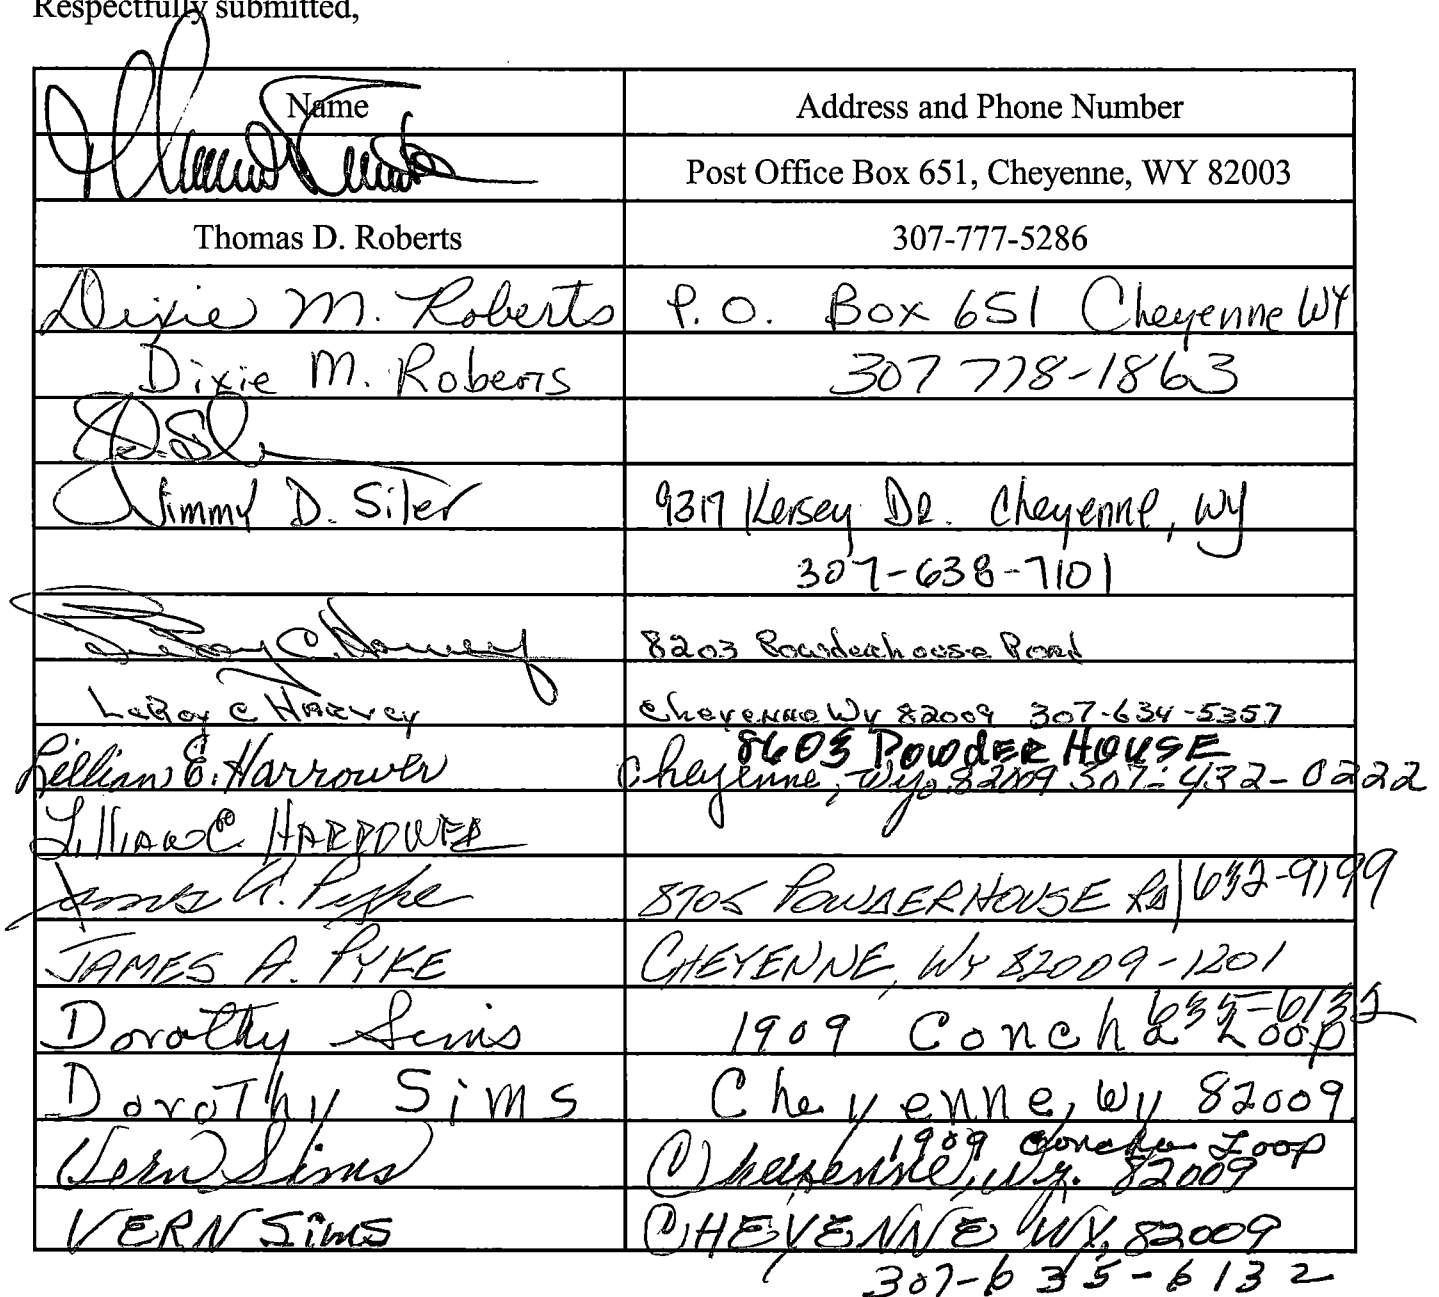 Respectfully submitted,
Name Address and Phone Number
Post Office Box 651, Cheyenne, WY 82003
Thomas D. Roberts 307-777-5286
Dixie M. Roberts P. O. Box 651 Cheyenne WY
Dixie M. Roberts 307 778-1863
Jimmy D. Siler 9317 Kersey DR. Cheyenne, WY
307-638-7101
LeRoy C. Harvey 8203 Powderhouse Road
LeRoy C Harvey Cheyenne Wy 82009 307-634-5357
8603 POWDER HOUSE
Lillian E. Harrower Cheyenne, Wyo. 82009 307-432-0222
Lillian E HARROWER
James A. Pyke 8705 POWDERHOUSE Rd 632-9199
JAMES A. PYKE CHEYENNE, WY 82009-1201
635-6132
Dorothy Sims 1909 Concha Loop
Dorothy Sims Cheyenne, Wy 82009
1909 Concha Loop
Vern Sims Cheyenne, Wy. 82009
VERN Sims CHEYENNE WY. 82009
307-635-6132